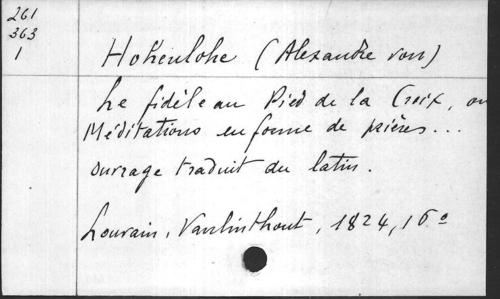 261
363
1
Hohenlohe (Alexandre von)
Le fidèle au Pied de la Croix, ou
Méditations en forme de prières...
ouvrage traduit du latin.
Louvain, Vanlinthout, 1824, 16º